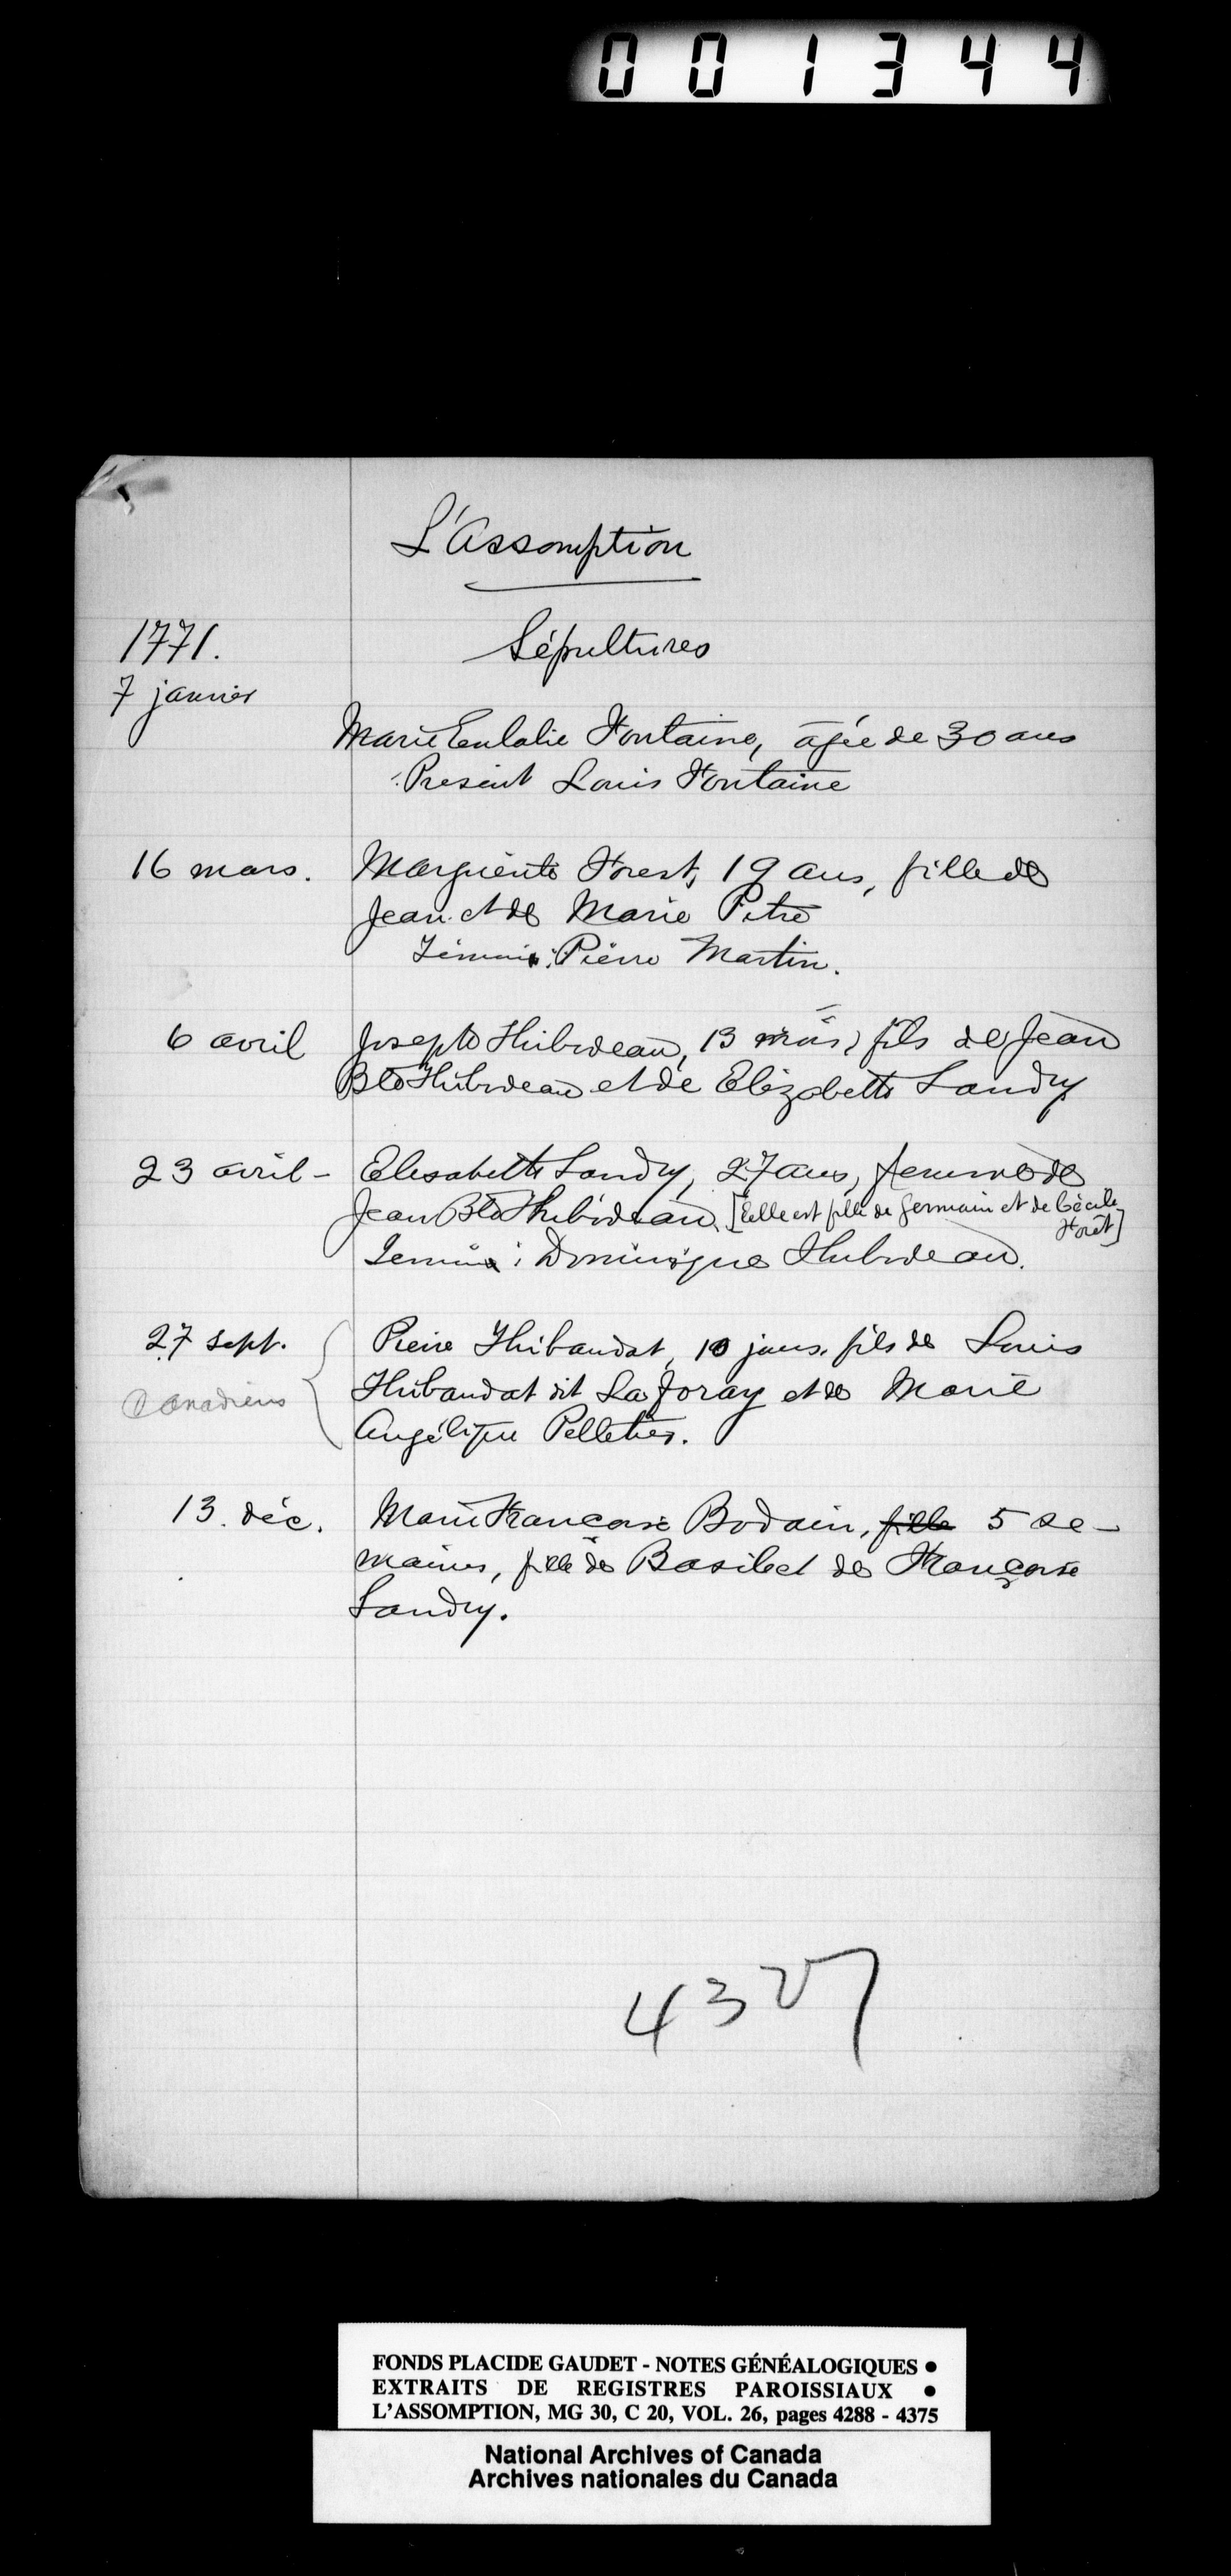 001344
L'Assomption
1771. Sépultures
7 janvier
Marie Eulalie Fontaine, agée de 30 ans
Présent Louis Fontaine
16 mars. Marguerite Forest, 19 ans, fille de
Jean et de Marie Pitre
Témoin: Pierre Martin.
6 avril Joseph Thibodeau, 13 mois, fils de Jean
Bte Thibodeau et de Elizabeth Landry
23 avril - Elisabeth Landry, 27 ans, femme de
Jean Bte Thibodeau. [Elle est fille de Germain et de Cécile
Forêt]
Témoin: Dominique Thibodeau.
27 sept. Pierre Thibaudat, 10 jours, fils de Louis
Canadiens Thibaudat dit La Joray et de Marie
Angélique Pelletier.
13. déc. Marie Françoise Bodain, fille 5 se-
maines, fille de Basile et de Françoise
Landry.
4327
FONDS PLACIDE GAUDET - NOTES GÉNÉALOGIQUES •
EXTRAITS DE REGISTRES PAROISSIAUX •
L'ASSOMPTION, MG 30, C 20, VOL. 26, pages 4288 - 4375
National Archives of Canada
Archives nationales du Canada